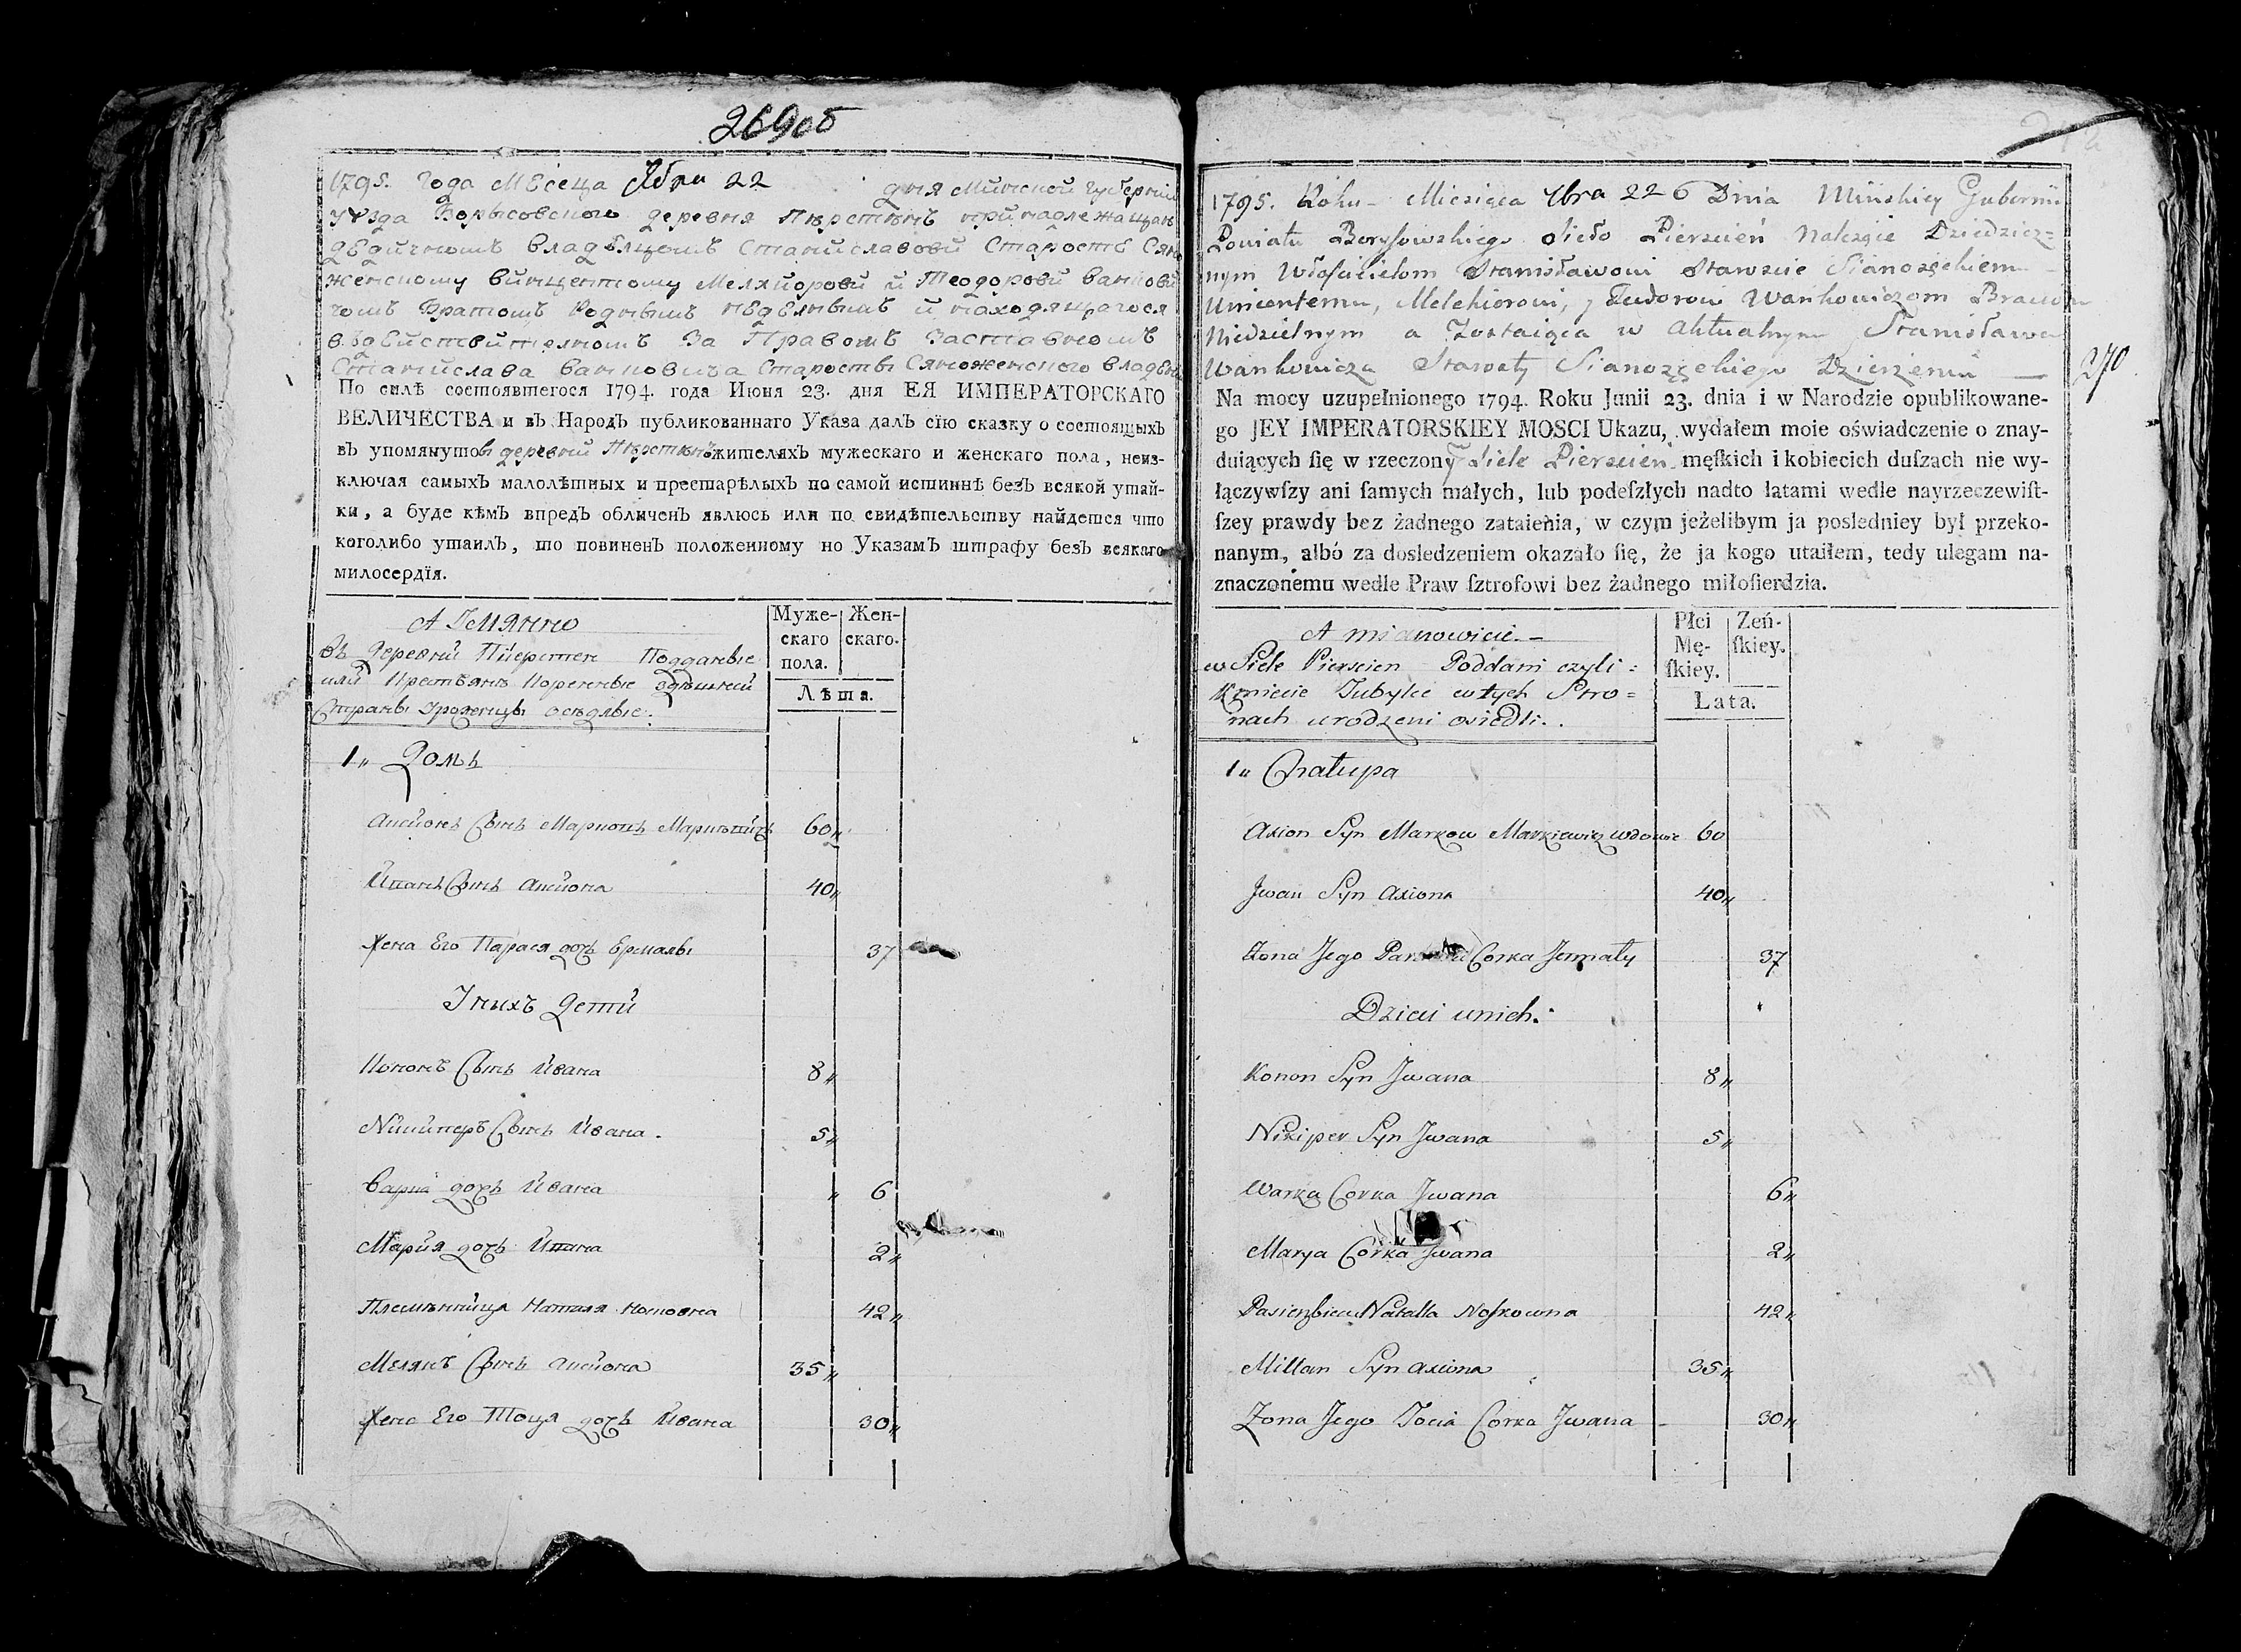 269об
1795. Года Месеца Ябри 22 дня Минской Губерній
Уѣзда Борысовского деревня Пѣрстѣнь принадлежащая
дѣдичномъ владѣлцомъ Станиславови Старостѣ Сяно
женскому Винцентому Мелхиорови и Теодорови Ванкови
чомъ Братомъ Роднымъ недѣлнымъ и находящагося
в дѣйствителномъ За Правомъ Заставномъ
Станислава Ванковича Старосты Сяноженского владѣнии
По силѣ состоявшегося 1794. года Июня 23. дня ЕЯ ИМПЕРАТОРСКАГО
ВЕЛИЧЕСТВА и въ Народѣ публикованнаго Указа далъ сїю сказку о состоящыхъ
въ упомянутой деревни Пѣрстень жителяхъ мужескаго и женскаго пола, неиз-
ключая самыхъ малолѣтныхъ и престарѣлыхъ по самой истиннѣ безъ всякой утай-
ки, а буде кѣмъ впредь обличенъ явлюсь или по свидѣтельству найдется что
коголибо утаилъ, то повиненъ положенному по Указамъ штрафу безъ всякаго
милосердїя.
А Імянно
Въ деревни Пиерстен Подданые
или Крестьяне Коренные здѣшней
Страны Урожѣнцы осѣдлые:
Муже-
скаго
пола.
Жен-
скаго.
Лѣта.
1„ Домъ
Аксионъ Сынъ Марковъ Маркевичъ 60„
Иванъ Сынъ Аксиона 40„
Жена Его Парася дочь Ермалы 37
У нихъ Дети
Кононъ Сынъ Ивана 8„
Никиперъ Сынъ Ивана. 5„
Варка дочь Ивана „ 6
Мария дочь Ивана 2„
Племѣнница Наталя 42„
Мелянъ Сынъ Аксиона 35„
Жена Его Тоця дочь Ивана 30„
1795. Roku - Miesiąca 7bra 22 6 Dnia Mińskiey Gubernii
Powiatu Borysowskiego Sieło Pierscień Należące Dziedzicz=
nym Włascicielom Stanisławowi Staroscie Sianozęckiemu
Wincentemu, Melchiorowi, y Teodorowi Wańkowiczom Braciom
Niedzielnym a Zostaiąca w Aktualnym Stanisława
Wankowicza Starosty Sianozęckiego Dzierżeniu —
270
Na mocy uzupełnionego 1794. Roku Junii 23. dnia i w Narodzie opublikowane-
go JEY IMPERATORSKIEY MOSCI Ukazu, wydałem moie oświadczenie o znay-
duiących ſię w rzeczony Siele Pierscień męſkich i kobiecich duſzach nie wy-
łączywſzy ani ſamych małych, lub podeſzłych nadto łatami wedle nayrzeczewiſt-
ſzey prawdy bez żadnego zataienia, w czym jeżelibym ja posledniey był przeko-
nanym, albó za dosledzeniem okazało ſię, że ja kogo utaiłem, tedy ulegam na-
znaczonemu wedle Praw ſztrofowi bez żadnego miłoſierdzia.
A mianowicie. -
w Siele Pierscien Poddani czyli =
Kmiecie Tubylce w tych Stro=
nach urodzeni osiedli. .
Płci
Mę-
ſkiey.
Żeń-
ſkiey.
Lata.
1„ Chałupa
Axion Syn Markow Markiewicz wdowiec 60
Jwan Syn Axiona 40„
Żona Jego Corka Jermały 37
Dzieci u nich:
Konon Syn Jwana 8„
Nikiper Syn Jwana 5„
Warka Corka Jwana 6„
Marya Corka Jwana 2„
Pasierzbica Natalla Noskowna 42„
Millan Syn Axiona 35„
Zona Jego Tocia Corka Jwana - 30„